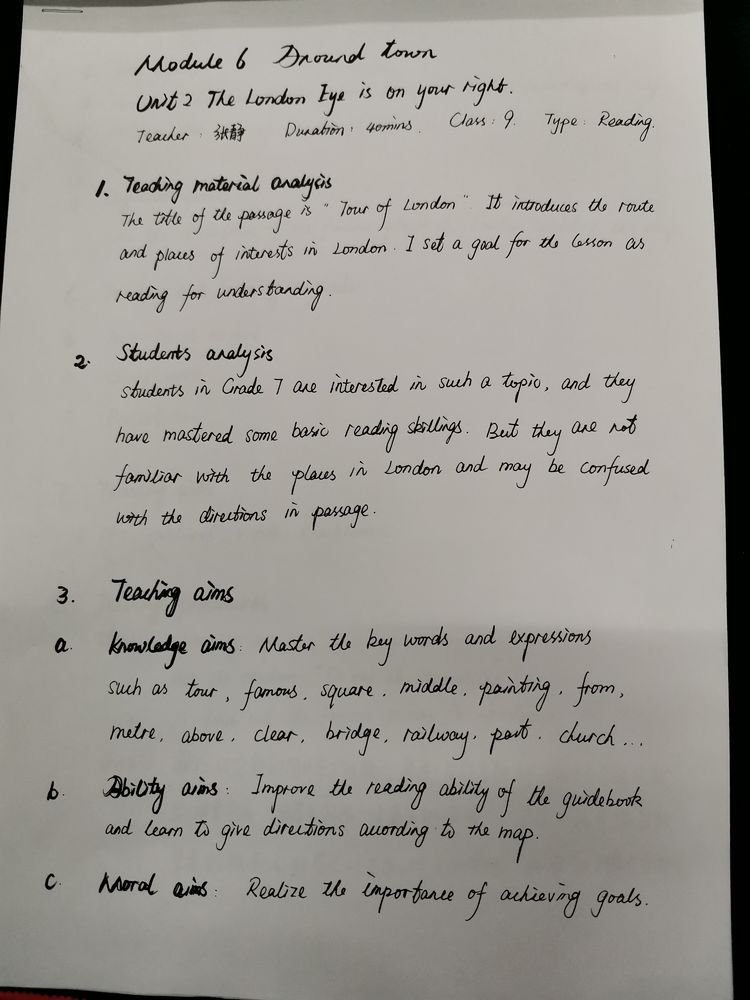 Module 6 Around town
Unit 2 The London Eye is on your right.
Teacher: 张静 Duration: 40mins. Class: 9. Type: Reading.
1. Teaching material analysis
The title of the passage is "Tour of London". It introduces the route
and places of interests in London. I set a goal for the lesson as
reading for understanding.
2. Students analysis
Students in Grade 7 are interested in such a topic, and they
have mastered some basic reading skillings. But they are not
familiar with the places in London and may be confused
with the directions in passage.
3. Teaching aims
a. Knowledge aims: Master the key words and expressions
such as tour, famous, square, middle, painting, from,
metre, above, clear, bridge, railway, past, church...
b. Ability aims: Improve the reading ability of the guidebook
and learn to give directions according to the map.
c. Moral aims: Realize the importance of achieving goals.